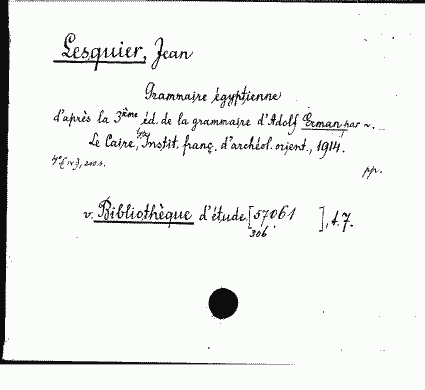 Lesquier, Jean
Grammaire égyptienne
d'après la 3ième éd. de la grammaire d'Adolf Erman par ~.
Le Caire, Instit. franç. d'archéol. orient., 1914.
pp.
v. Bibliothèque d'étude [57061 ], t. 7.
306